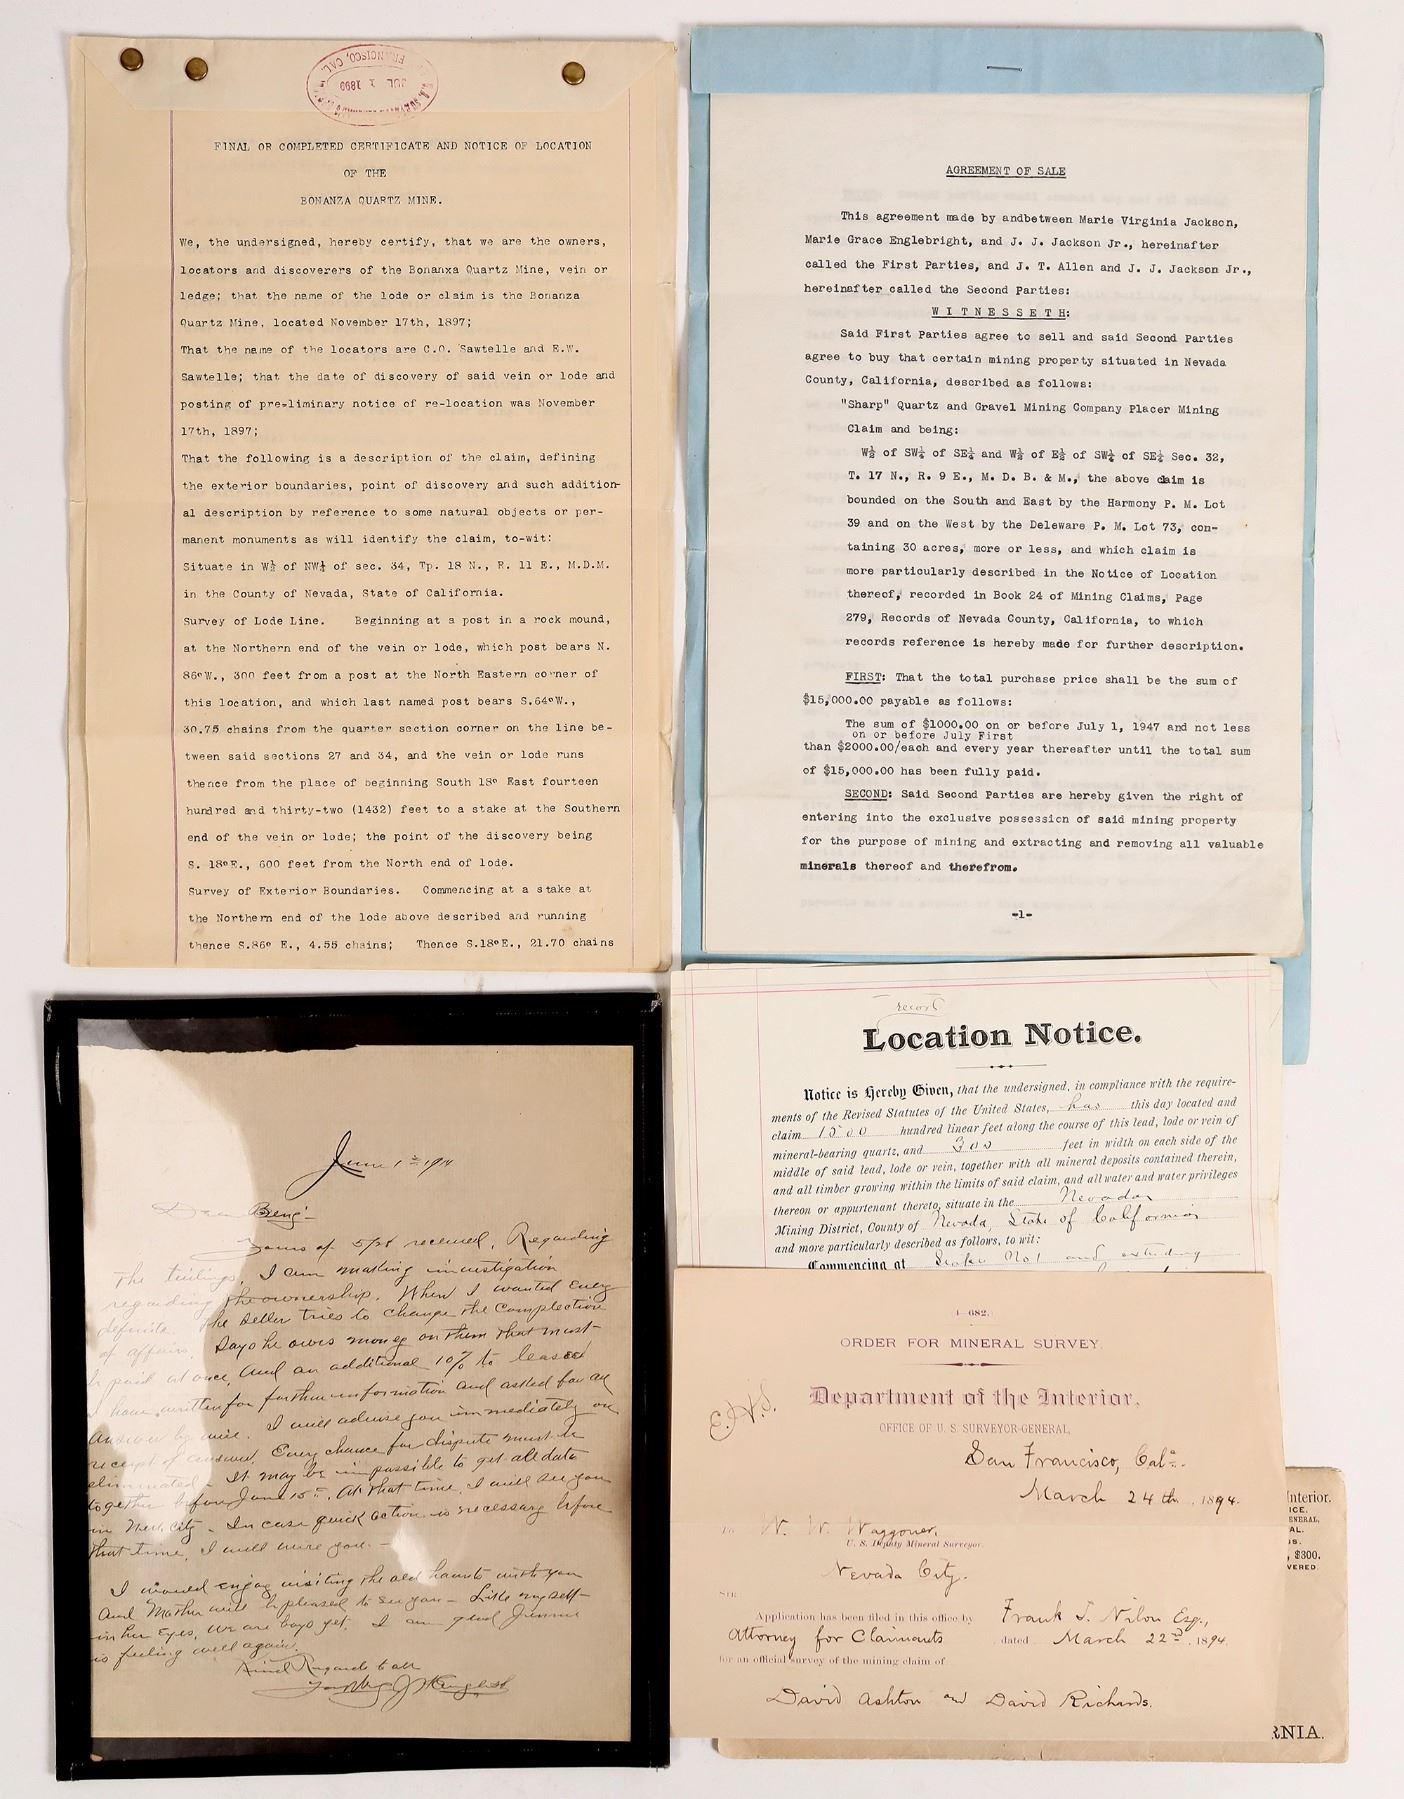 FRANCISCO, CAL.
JUL 1 1899
FINAL OR COMPLETED CERTIFICATE AND NOTICE OF LOCATION
OF THE
BONANZA QUARTZ MINE.
We, the undersigned, hereby certify, that we are the owners,
locators and discoverers of the Bonanxa Quartz Mine, vein or
ledge; that the name of the lode or claim is the Bonanza
Quartz Mine, located November 17th, 1897;
That the name of the locators are C.O. Sawtelle and E.W.
Sawtelle; that the date of discovery of said vein or lode and
posting of pre-liminary notice of re-location was November
17th, 1897;
That the following is a description of the claim, defining
the exterior boundaries, point of discovery and such addition-
al description by reference to some natural objects or per-
manent monuments as will identify the claim, to-wit:
Situate in W½ of NW¼ of sec. 34, Tp. 18 N., R. 11 E., M.D.M.
in the County of Nevada, State of California.
Survey of Lode Line. Beginning at a post in a rock mound,
at the Northern end of the vein or lode, which post bears N.
86°W., 300 feet from a post at the North Eastern corner of
this location, and which last named post bears S.64°W.,
30.75 chains from the quarter section corner on the line be-
tween said sections 27 and 34, and the vein or lode runs
thence from the place of beginning South 18° East fourteen
hundred and thirty-two (1432) feet to a stake at the Southern
end of the vein or lode; the point of the discovery being
S. 18°E., 600 feet from the North end of lode.
Survey of Exterior Boundaries. Commencing at a stake at
the Northern end of the lode above described and running
thence S.86° E., 4.55 chains; Thence S.18°E., 21.70 chains
AGREEMENT OF SALE
This agreement made by andbetween Marie Virginia Jackson,
Marie Grace Englebright, and J. J. Jackson Jr., hereinafter
called the First Parties, and J. T. Allen and J. J. Jackson Jr.,
hereinafter called the Second Parties:
W I T N E S S E T H:
Said First Parties agree to sell and said Second Parties
agree to buy that certain mining property situated in Nevada
County, California, described as follows:
"Sharp" Quartz and Gravel Mining Company Placer Mining
Claim and being:
W½ of SW¼ of SE¼ and W½ of E½ of SW¼ of SE¼ Sec. 32,
T. 17 N., R. 9 E., M. D. B. & M., the above claim is
bounded on the South and East by the Harmony P. M. Lot
39 and on the West by the Deleware P. M. Lot 73, con-
taining 30 acres, more or less, and which claim is
more particularly described in the Notice of Location
thereof, recorded in Book 24 of Mining Claims, Page
279, Records of Nevada County, California, to which
records reference is hereby made for further description.
FIRST: That the total purchase price shall be the sum of
$15,000.00 payable as follows:
The sum of $1000.00 on or before July 1, 1947 and not less
on or before July First
than $2000.00/each and every year thereafter until the total sum
of $15,000.00 has been fully paid.
SECOND: Said Second Parties are hereby given the right of
entering into the exclusive possession of said mining property
for the purpose of mining and extracting and removing all valuable
minerals thereof and therefrom.
-1-
June 1st 1914
Dear Beng:-
Yours of 5/28 received. Regarding
the tailings, I am making investigation
regarding the ownership. When I wanted every
definite the seller tries to change the complection
of affairs. Says he owes money on them that must
be paid at once, and an additional 10% to leased
I have written for further information and asked for an
answer by wire. I will advise you immediately on
receipt of answer. Every chance for dispute must be
eliminated. It may be impossible to get all data
together before June 15th. At that time I will see you
in New City. In case quick action is necessary before
that time, I will wire you.-
I would enjoy visiting the old haunts with you
and Mother will be pleased to see you - Like myself-
in her eyes, we are boys yet. I am glad Jimmie
is feeling well again.
Kind Regards to all
record
Location Notice.
Notice is Hereby Given, that the undersigned, in compliance with the require-
ments of the Revised Statutes of the United States, has this day located and
claim 1500 hundred linear feet along the course of this lead, lode or vein of
mineral-bearing quartz, and 300 feet in width on each side of the
middle of said lead, lode or vein, together with all mineral deposits contained therein,
and all timber growing within the limits of said claim, and all water and water privileges
thereon or appurtenant thereto, situate in the Nevada
Mining District, County of Nevada, State of California
and more particularly described as follows, to wit:
Commencing at Stake No 1 and extending
4-682.
ORDER FOR MINERAL SURVEY.
E.H.S.
Department of the Interior,
OFFICE OF U. S. SURVEYOR-GENERAL,
San Francisco, Cala.
March 24th, 1894.
To W. W. Waggoner,
U. S. Deputy Mineral Surveyor.
Nevada City.
SIR:
Application has been filed in this office by Frank T. Nilon Esq.,
Attorney for Claimants dated March 22nd, 1894,
for an official survey of the mining claim of
David Ashton and David Richards.
Interior.
ICE.
ENERAL,
AL.
, $300.
VERED.
RNIA.